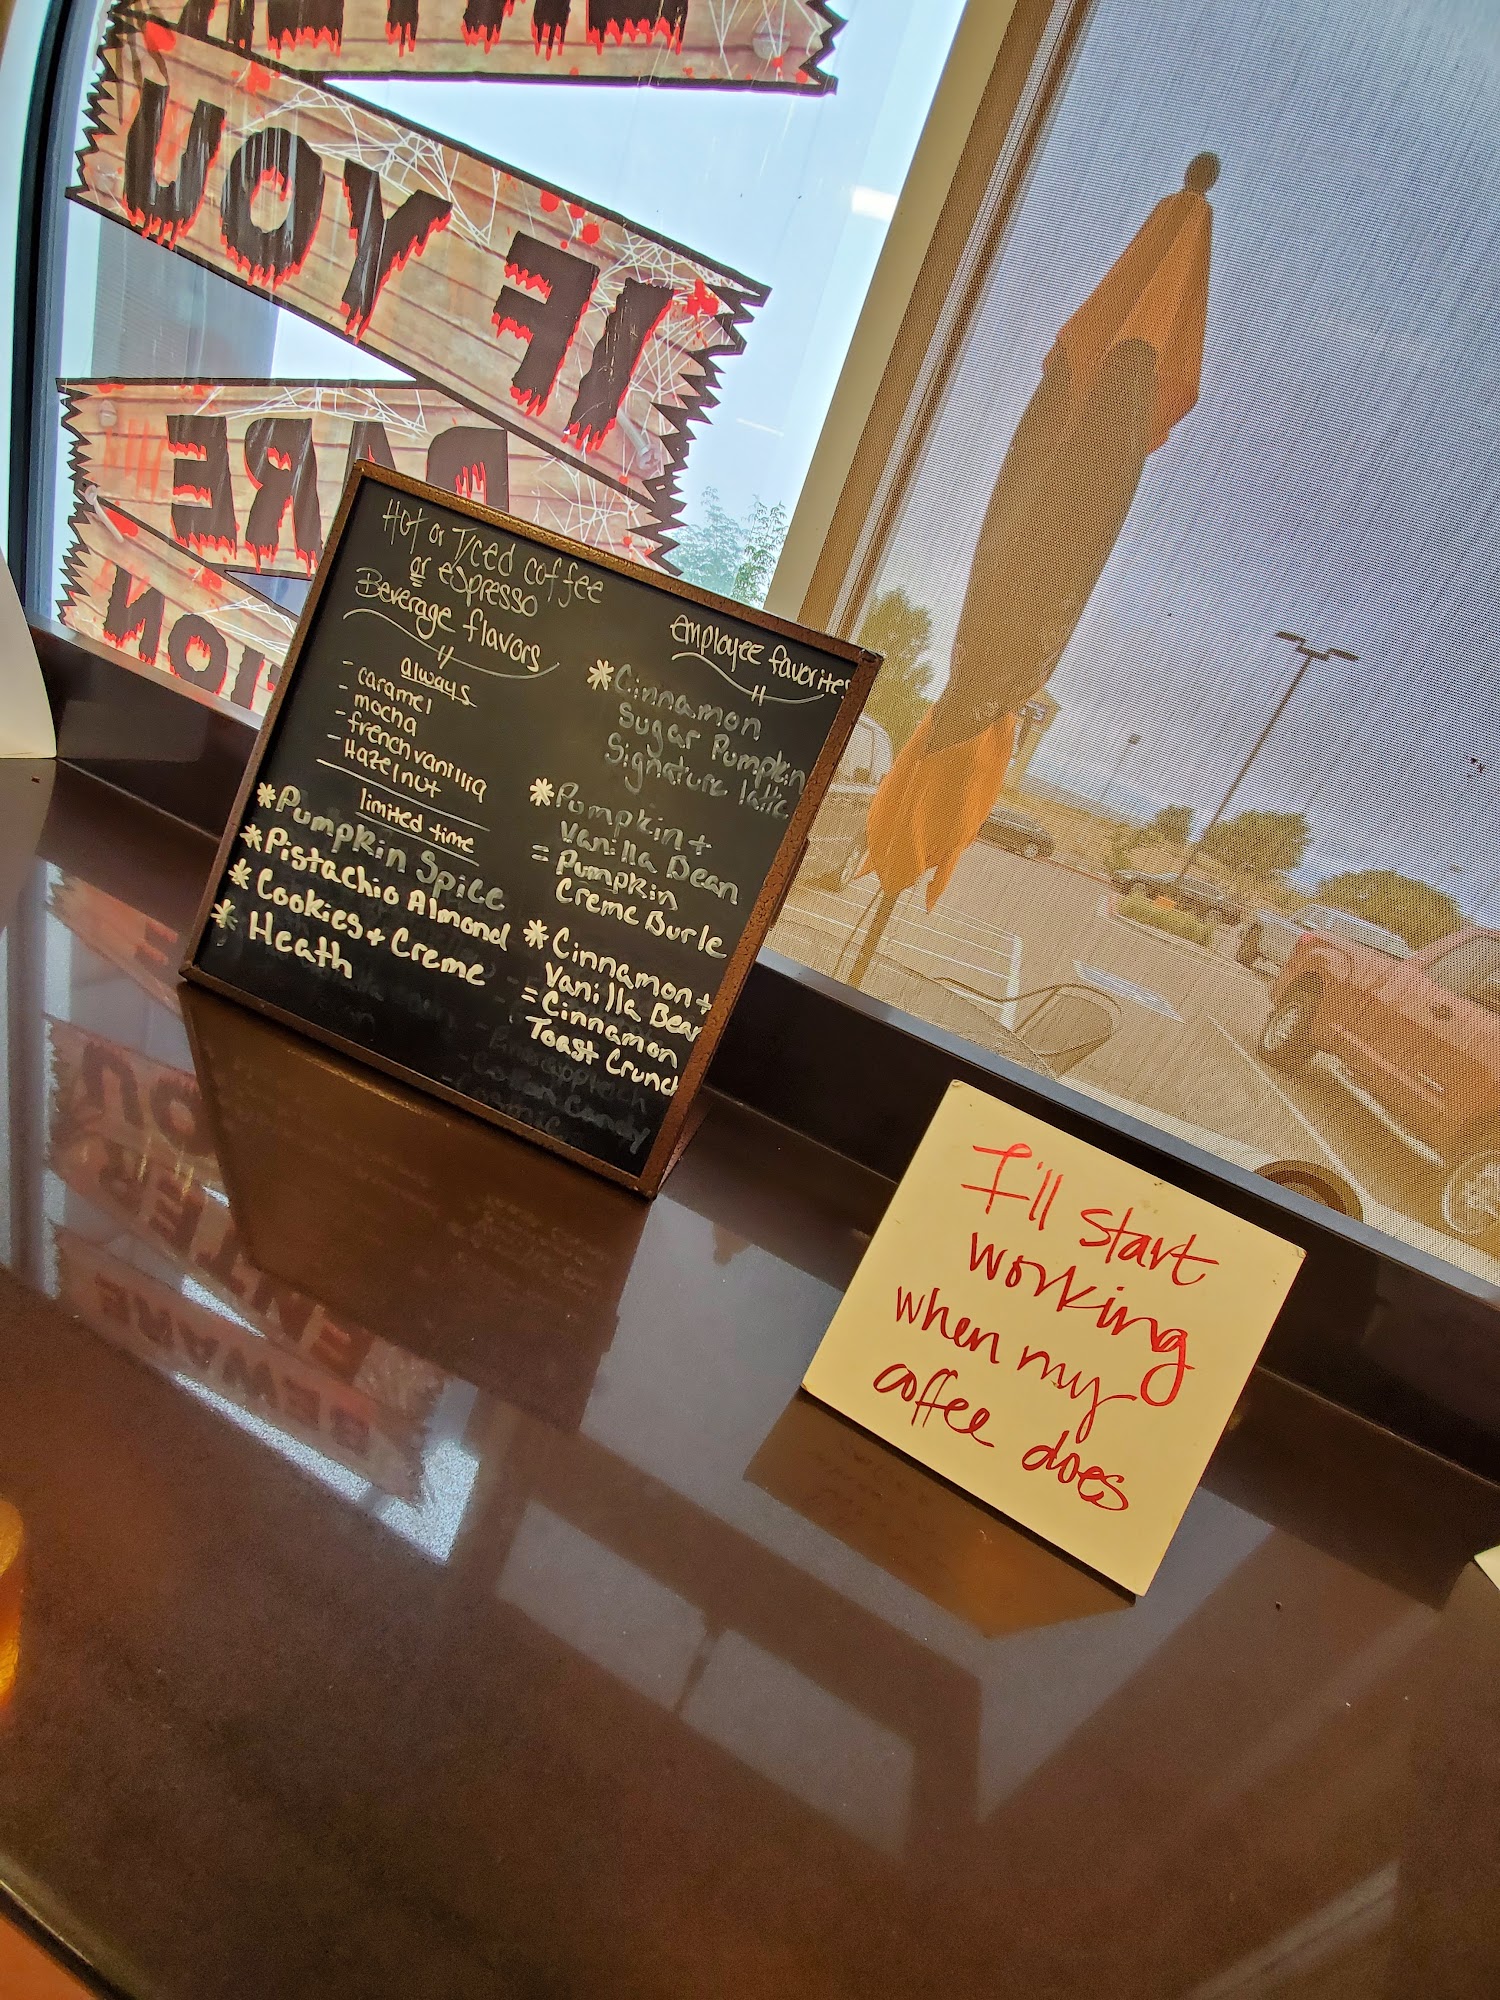 IF YOU
DARE
Hot or Iced coffee
or espresso
Beverage flavors
always
- caramel
- mocha
- french vanillia
- Hazelnut
limited time
* Pumpkin Spice
* Pistachio Almond
* Cookies + Creme
* Heath
employee favorites
* Cinnamon
Sugar Pumpkin
Signature latte
* Pumpkin +
Vanilla Bean
= Pumpkin
Creme Burle
* Cinnamon +
Vanilla Bean
= Cinnamon
Toast Crunch
Cotton Candy
I'll start
working
when my
coffee does